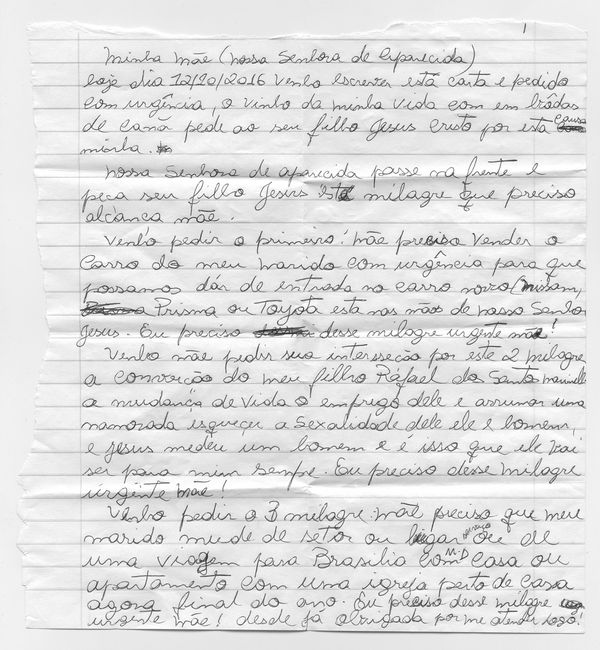 1
Minha Mãe (Nossa Senhora de Aparecida)
hoje dia 12/10/2016 venho escrever está carta e pedido
com urgência, o vinho da minha vida com em bôdas
de caná pede ao seu filho Jesus Cristo por esta causa
minha.
Nossa Senhora de aparecida passe na frente e
peça seu filho Jesus milagre que preciso
alcança mãe.
Venho pedir o primeiro: mãe preciso vender o
carro do meu marido com urgência para que
possamos dár de entrada no carro novo (Nissan,
Prisma ou Toyota esta nas mãos de nosso Senho
Jesus. Eu preciso desse milagre urgente mãe!
Venho mãe pedir sua intersseção por este 2 milagre
a converção do meu filho Rafael dos Santo
a mudança de vida o emprego dele e arrumar uma
namorada esqueçer a Sexalidade dele ele e homem,
e Jesus me deu um homem e é isso que ele vai
ser para mim sempre. Eu preciso desse milagre
urgente mãe!
Venho pedir o 3 milagre: mãe preciso que meu
marido mude de setor ou lugar serviço ou de
uma viagem para Brasilia com M.D casa ou
apartamento com uma igreja perto de casa
agora final do ano. Eu preciso desse milagre
urgente mãe! desde já obrigada por me atender logo!